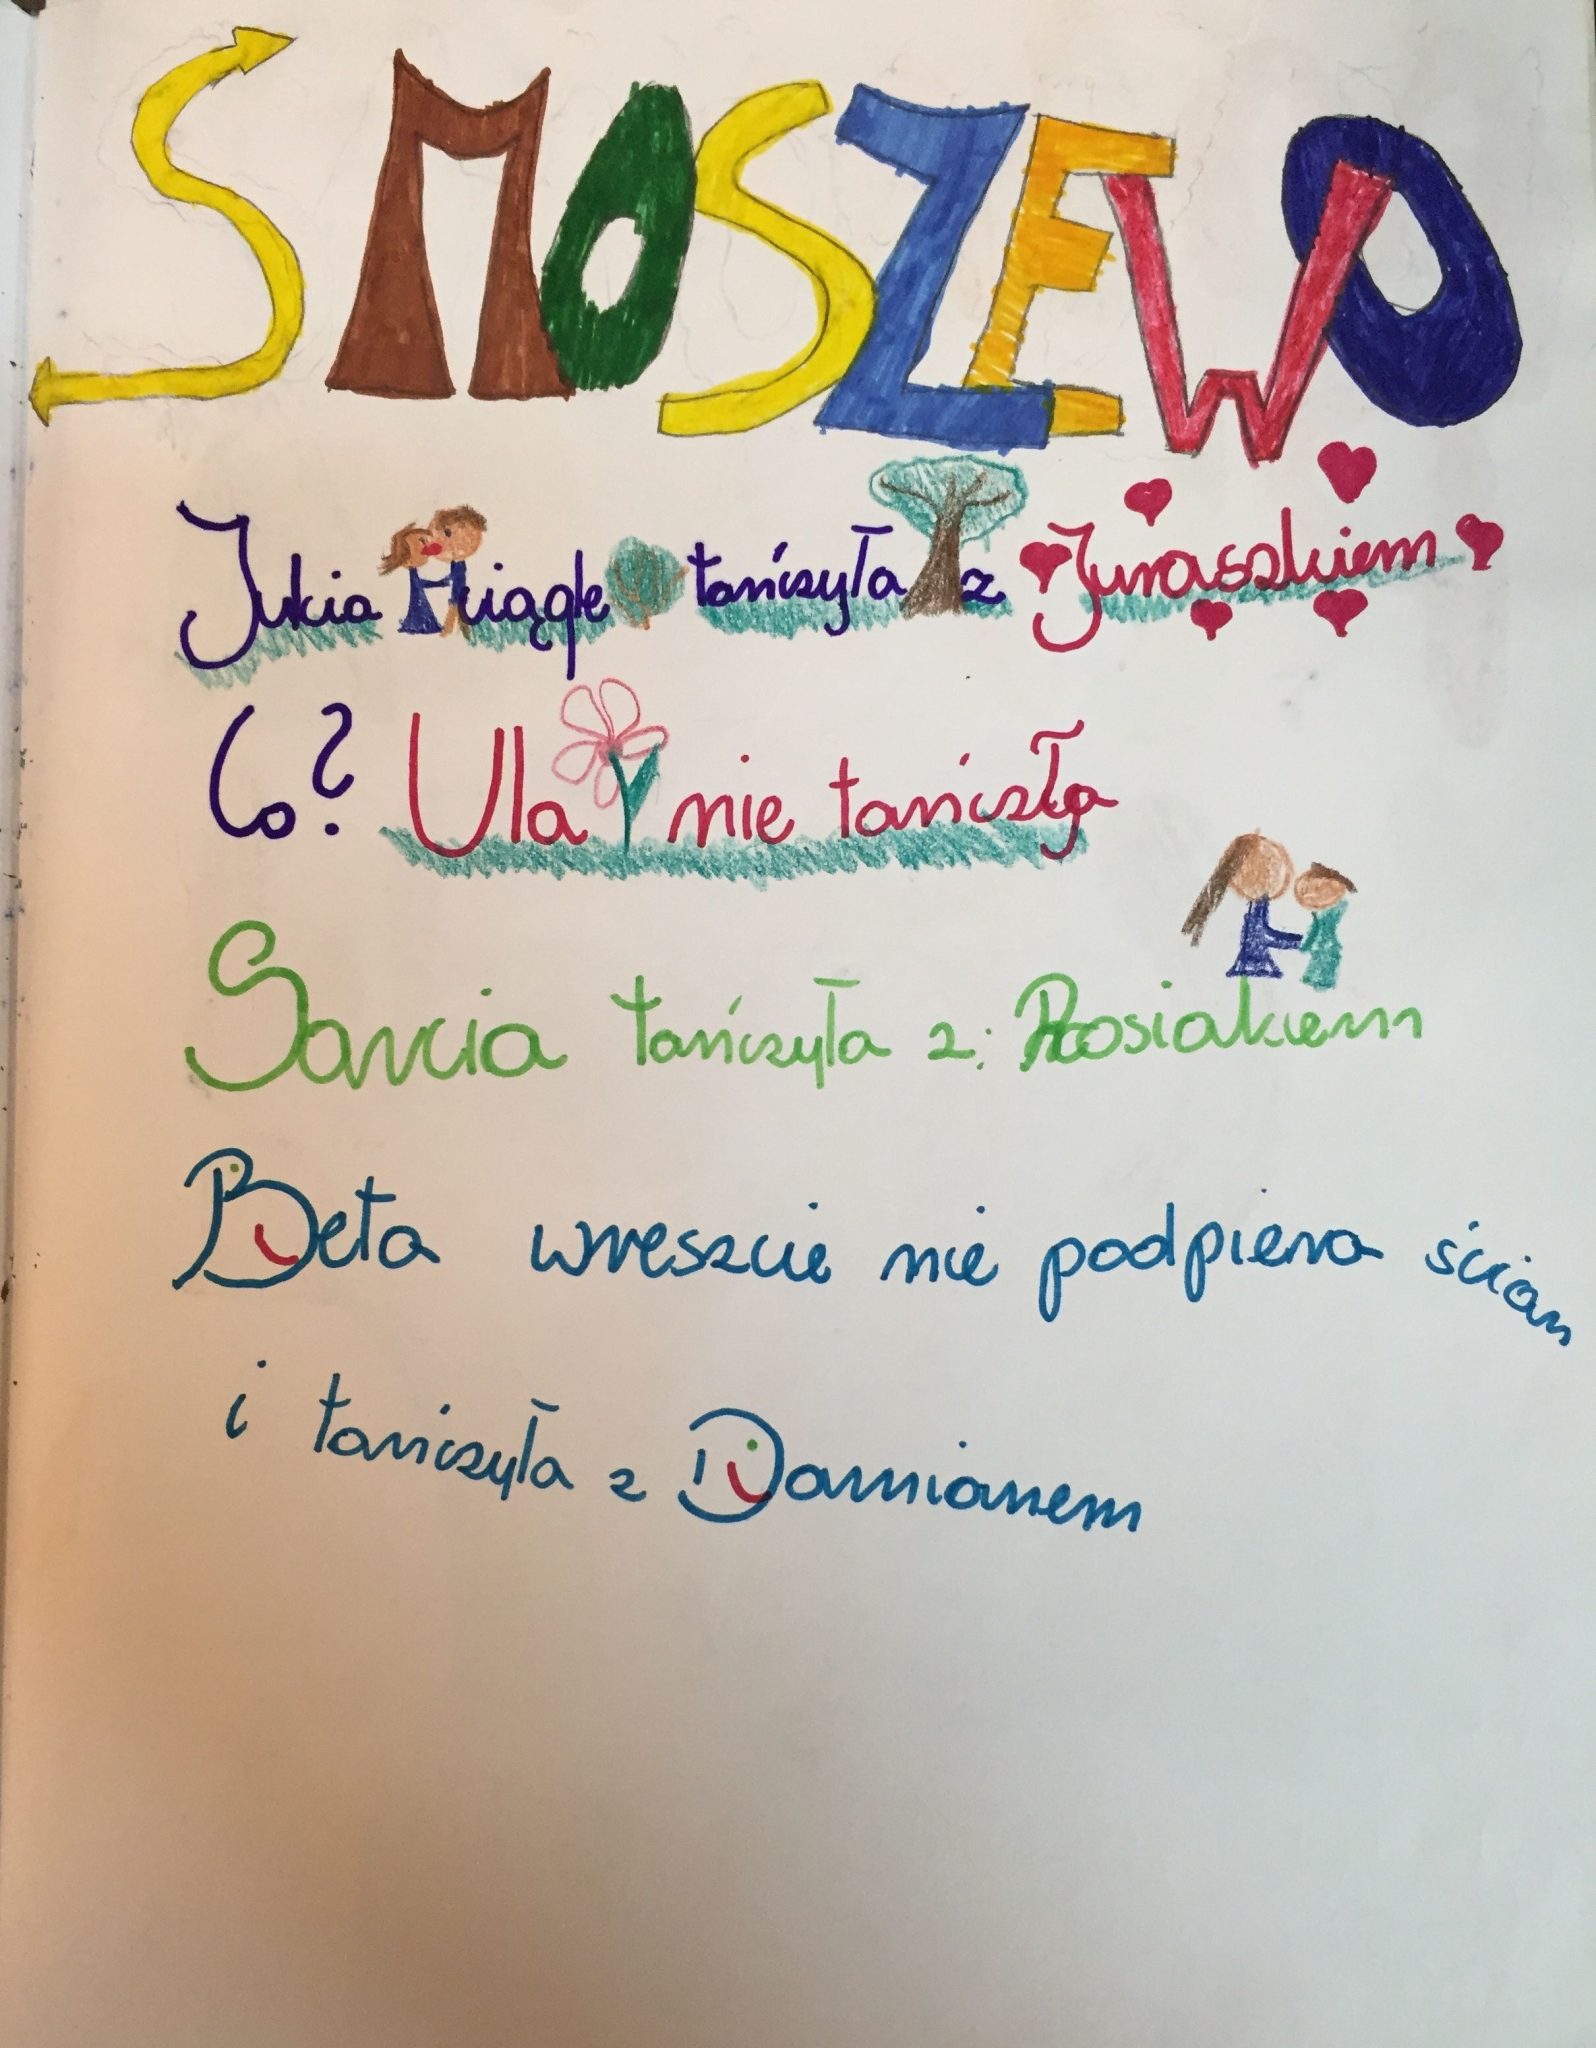 SMOSZEWO
Jukia ciągle tańczyła z Juraszkiem
Co? Ula nie tańczyła
Sarcia tańczyła z: Rosiakiem
Beta wreszcie nie podpiera ścian
i tańczyła z Damianem